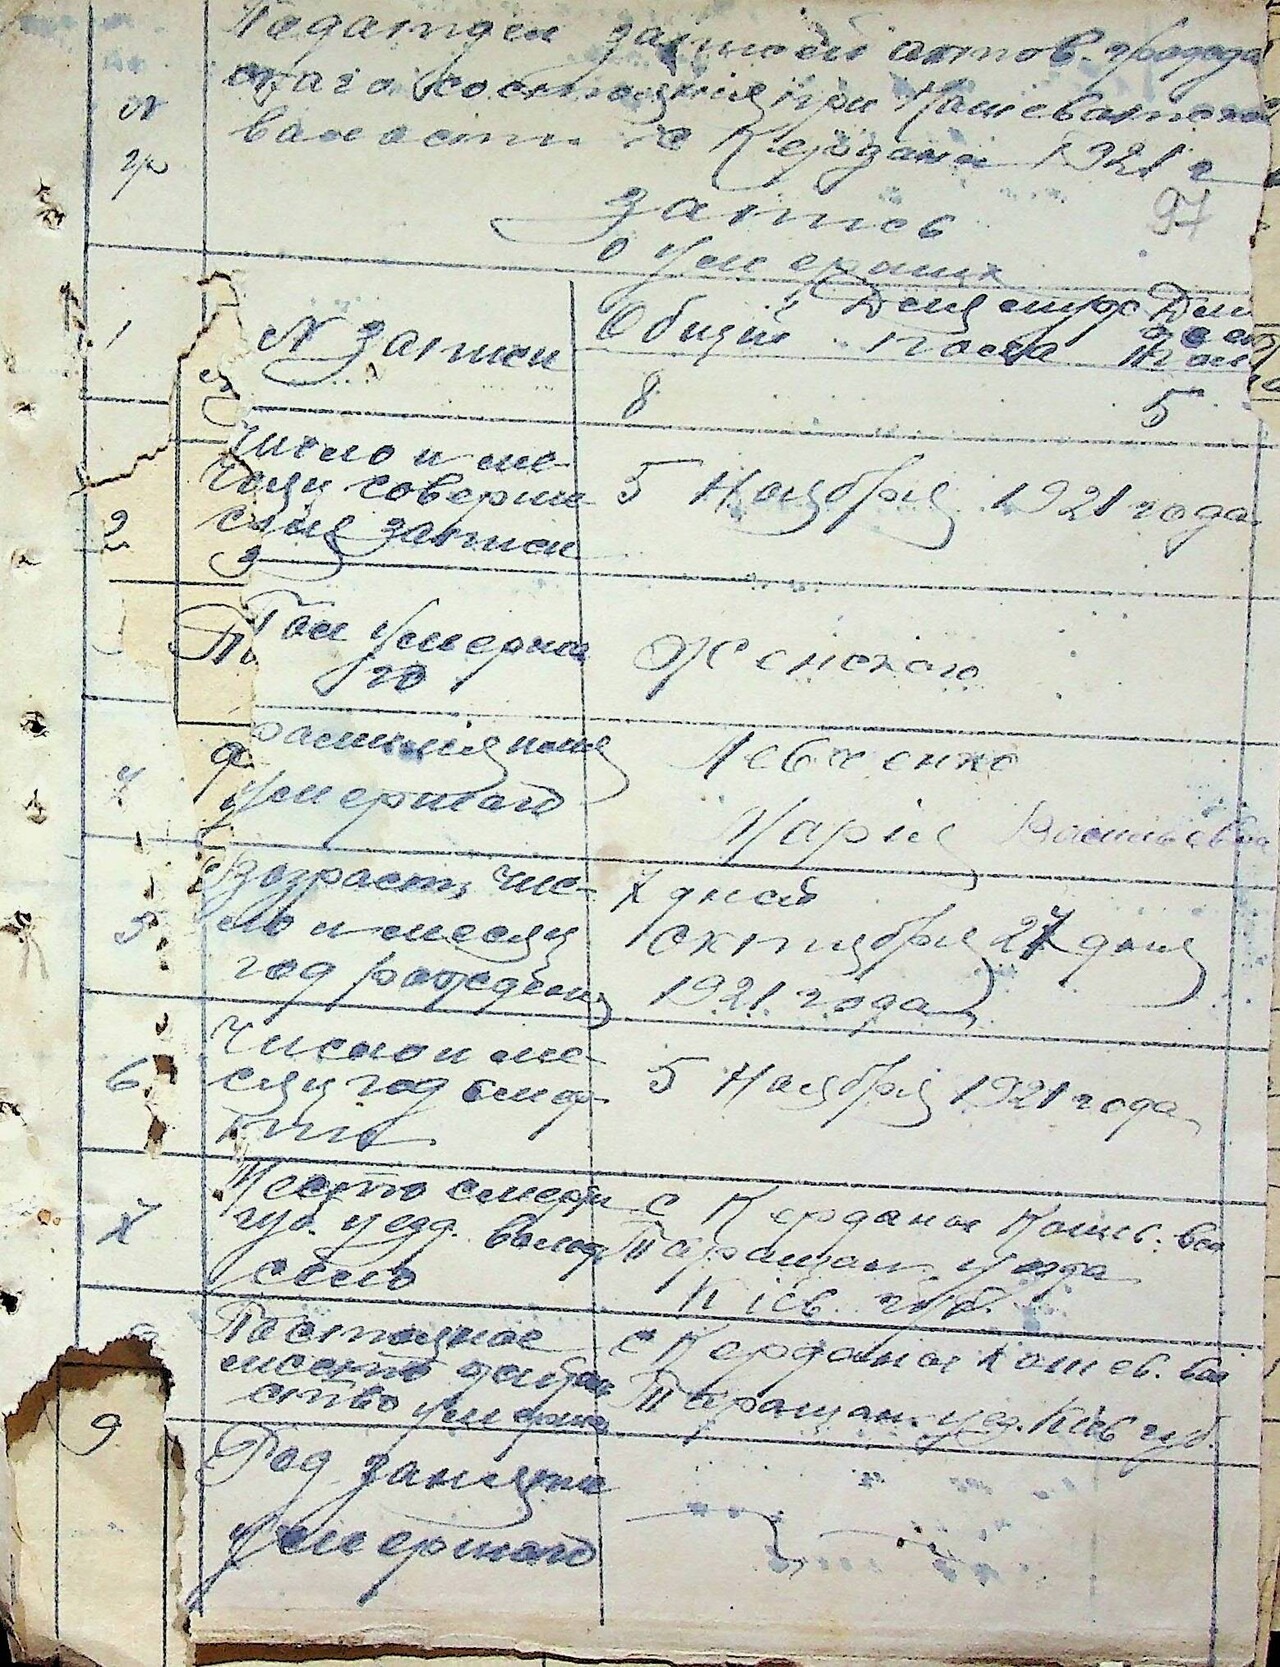 Податдел записей актов. гражда
скаго состояния при Кошеватской
волости с Кердана 1921 г
N
гр
97
Запись
о умерших
1
N записи
Общий
Для муж
пола
Для
жен
пола
8
5
2
Число и ме-
сяц соверше
ния записи
5 Ноября 1921 года
Пол умерша
го
Женскаго
4
Фамилия имя
умершаго
Левченко
Мария Васильевна
5.
Возраст, чис-
ло и месяц
год рождения
7 дней
октября 27 дня
1921 года
6
Число и ме-
сяц год смер-
ти
5 Ноября 1921 года
7
Место смерти
губ. уезд. волос
село
с Кердана Кошев. вол
Таращан. уезда
Киев. губ.
Постояное
место
ство умерша
с Кердана Кошев. вол
Таращан. уез. Киев губ.
9
Род занятия
умершаго